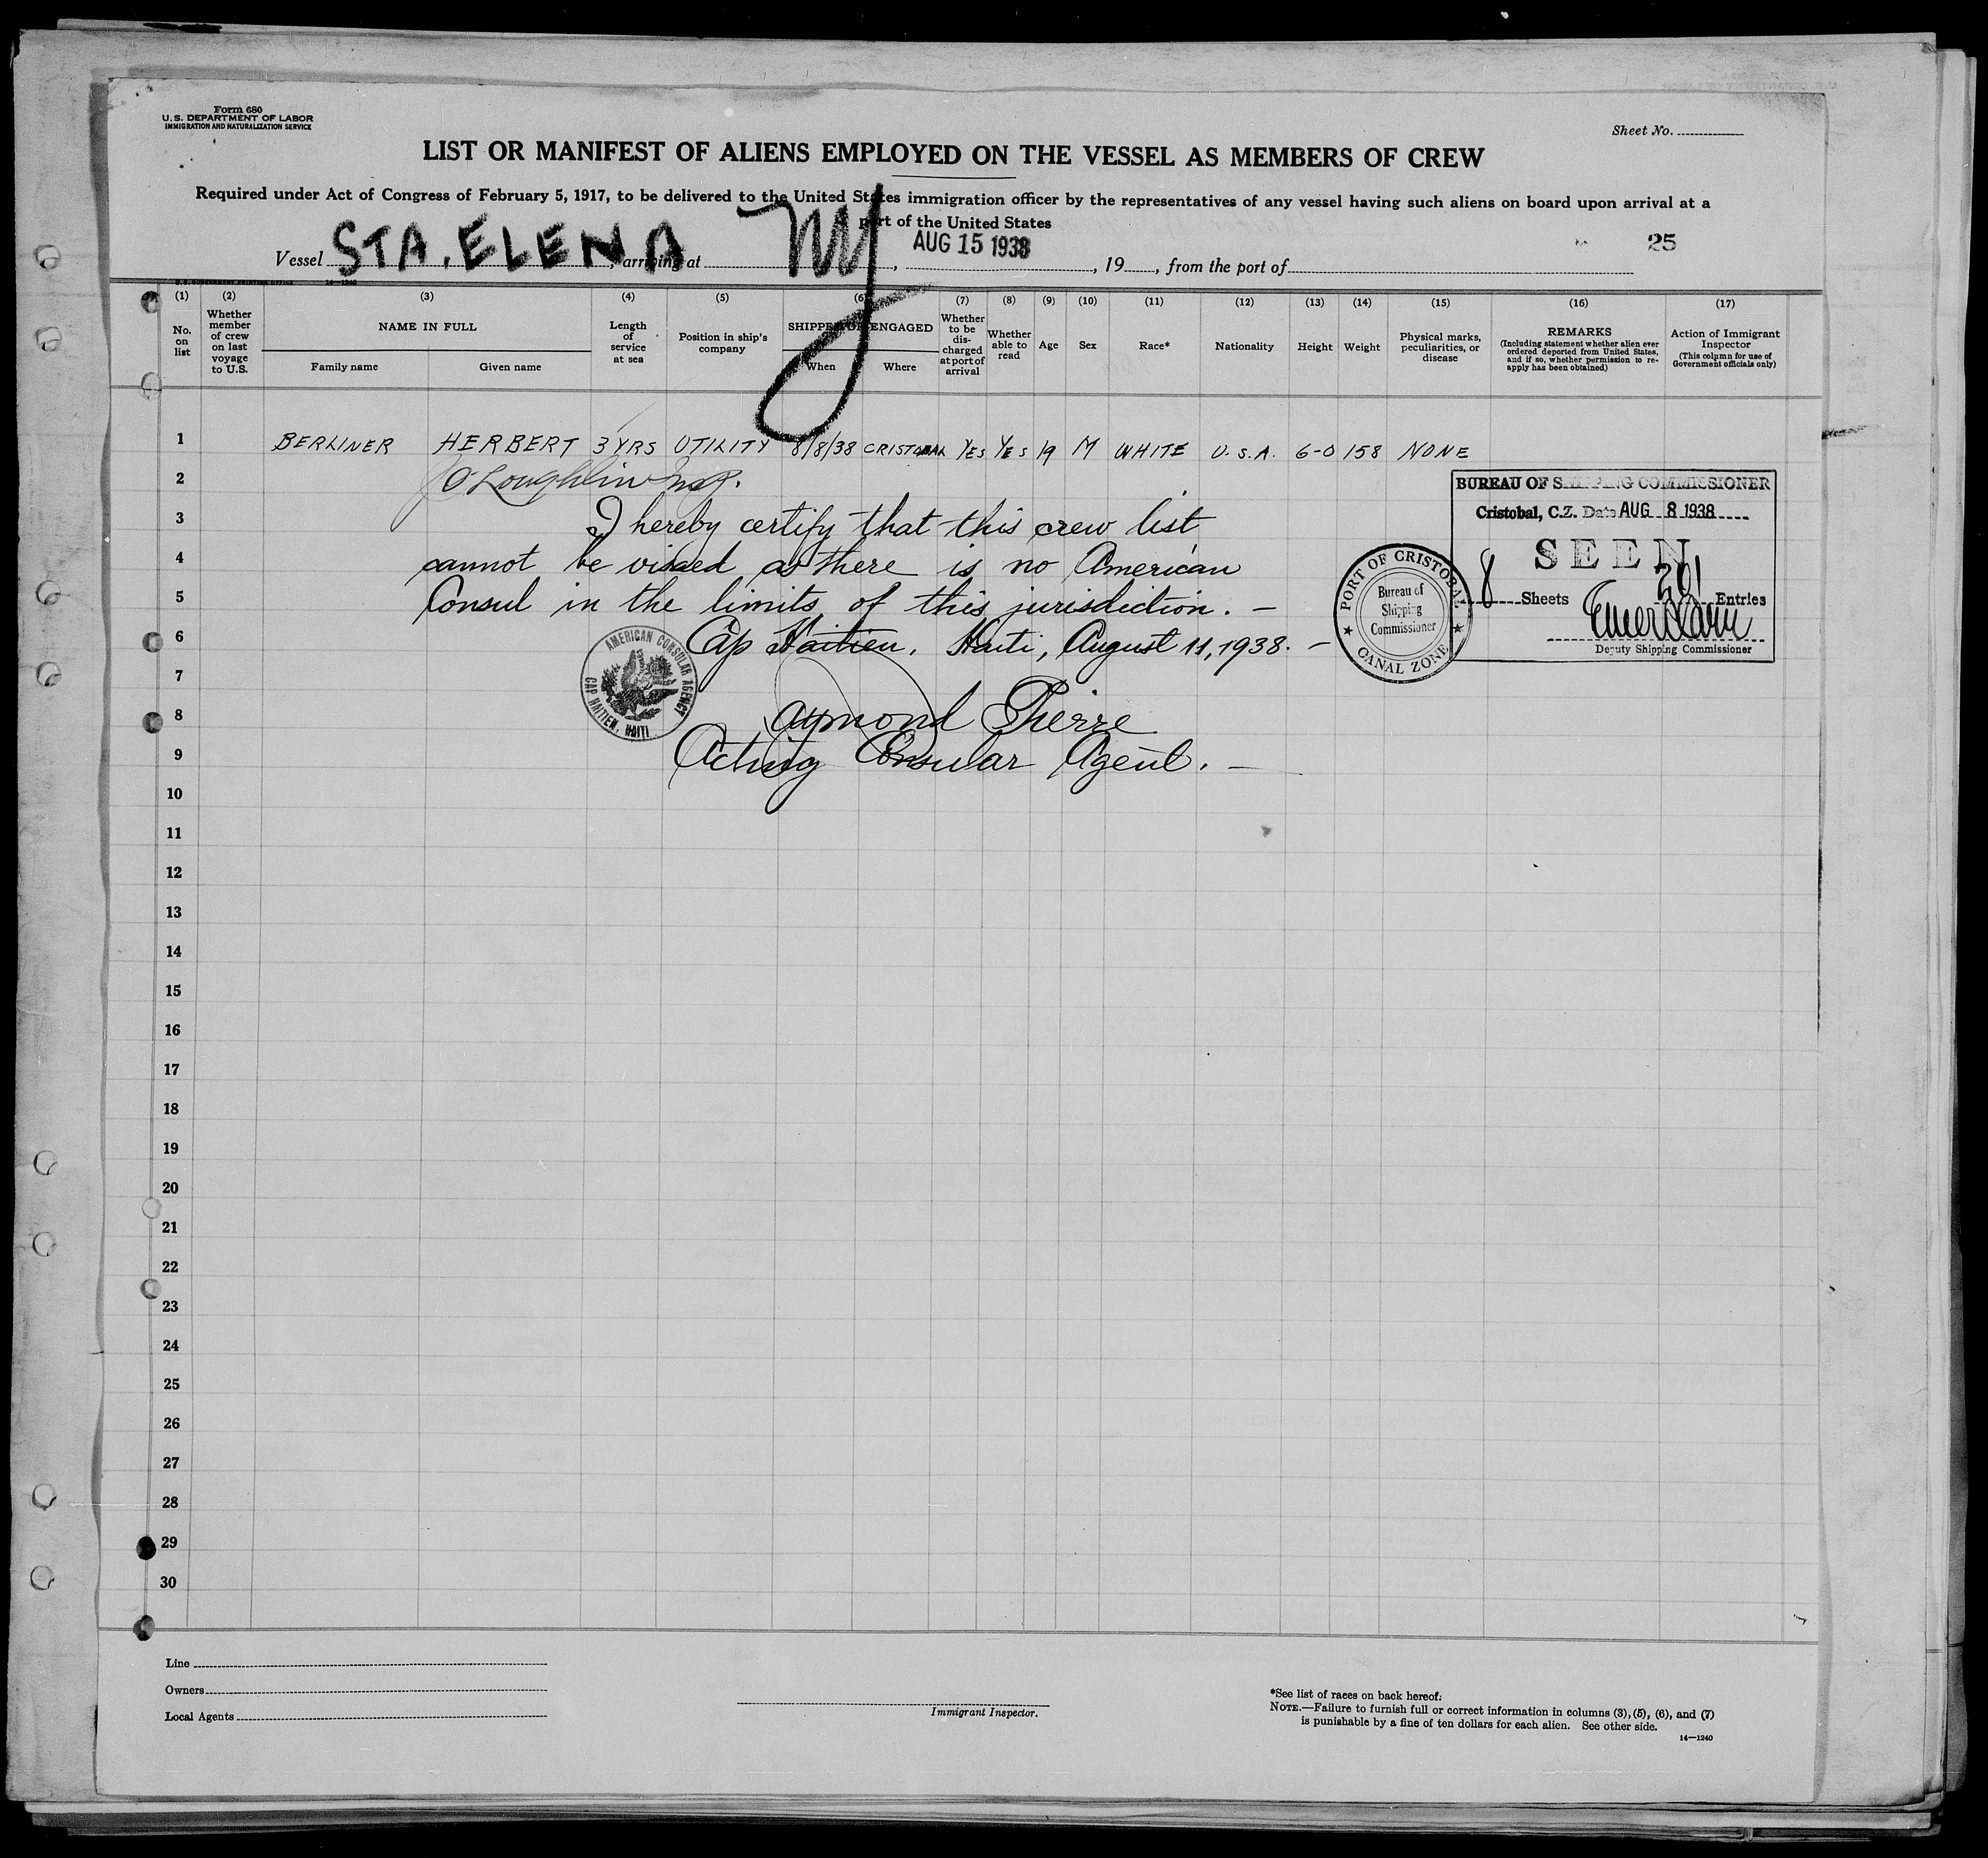 Form 680
U.S. DEPARTMENT OF LABOR
IMMIGRATION AND NATURALIZATION SERVICE
Sheet No.
LIST OR MANIFEST OF ALIENS EMPLOYED ON THE VESSEL AS MEMBERS OF CREW
Required under Act of Congress of February 5, 1917, to be delivered to the United States immigration officer by the representatives of any vessel having such aliens on board upon arrival at a
port of the United States
Vessel STA. ELENA, arriving at NY, AUG 15 1938, 19, from the port of
25
U.S. GOVERNMENT PRINTING OFFICE 14—1240
(1) (2) (3) (4) (5) (6) (7) (8) (9) (10) (11) (12) (13) (14) (15) (16) (17)
No. on list
Whether member of crew on last voyage to U.S.
NAME IN FULL
Family name
Given name
Length of service at sea
Position in ship's company
SHIPPED OR ENGAGED
When
Where
Whether to be discharged at port of arrival
Whether able to read
Age
Sex
Race*
Nationality
Height
Weight
Physical marks, peculiarities, or disease
REMARKS
(Including statement whether alien ever ordered deported from United States, and if so, whether permission to reapply has been obtained)
Action of Immigrant Inspector
(This column for use of Government officials only)
1 BERLINER HERBERT 3 YRS UTILITY 8/8/38 CRISTOBAL YES YES 19 M WHITE U.S.A. 6-0 158 NONE
2 O'Loughlin
3 I hereby certify that this crew list
4 cannot be visaed as there is no American
5 Consul in the limits of this jurisdiction. —
6 Cap Haitien, Haiti, August 11, 1938. —
7
8 Raymond Pierre
9 Acting Consular Agent. —
AMERICAN CONSULAR AGENCY
CAP HAITIEN, HAITI
BUREAU OF SHIPPING COMMISSIONER
Cristobal, C.Z. Date AUG 8 1938
SEEN
8 Sheets 201 Entries
Deputy Shipping Commissioner
PORT OF CRISTOBAL
Bureau of
Shipping
Commissioner
CANAL ZONE
10
11
12
13
14
15
16
17
18
19
20
21
22
23
24
25
26
27
28
29
30
Line
Owners
Local Agents
Immigrant Inspector.
*See list of races on back hereof.
NOTE.—Failure to furnish full or correct information in columns (3), (5), (6), and (7)
is punishable by a fine of ten dollars for each alien. See other side.
14—1240